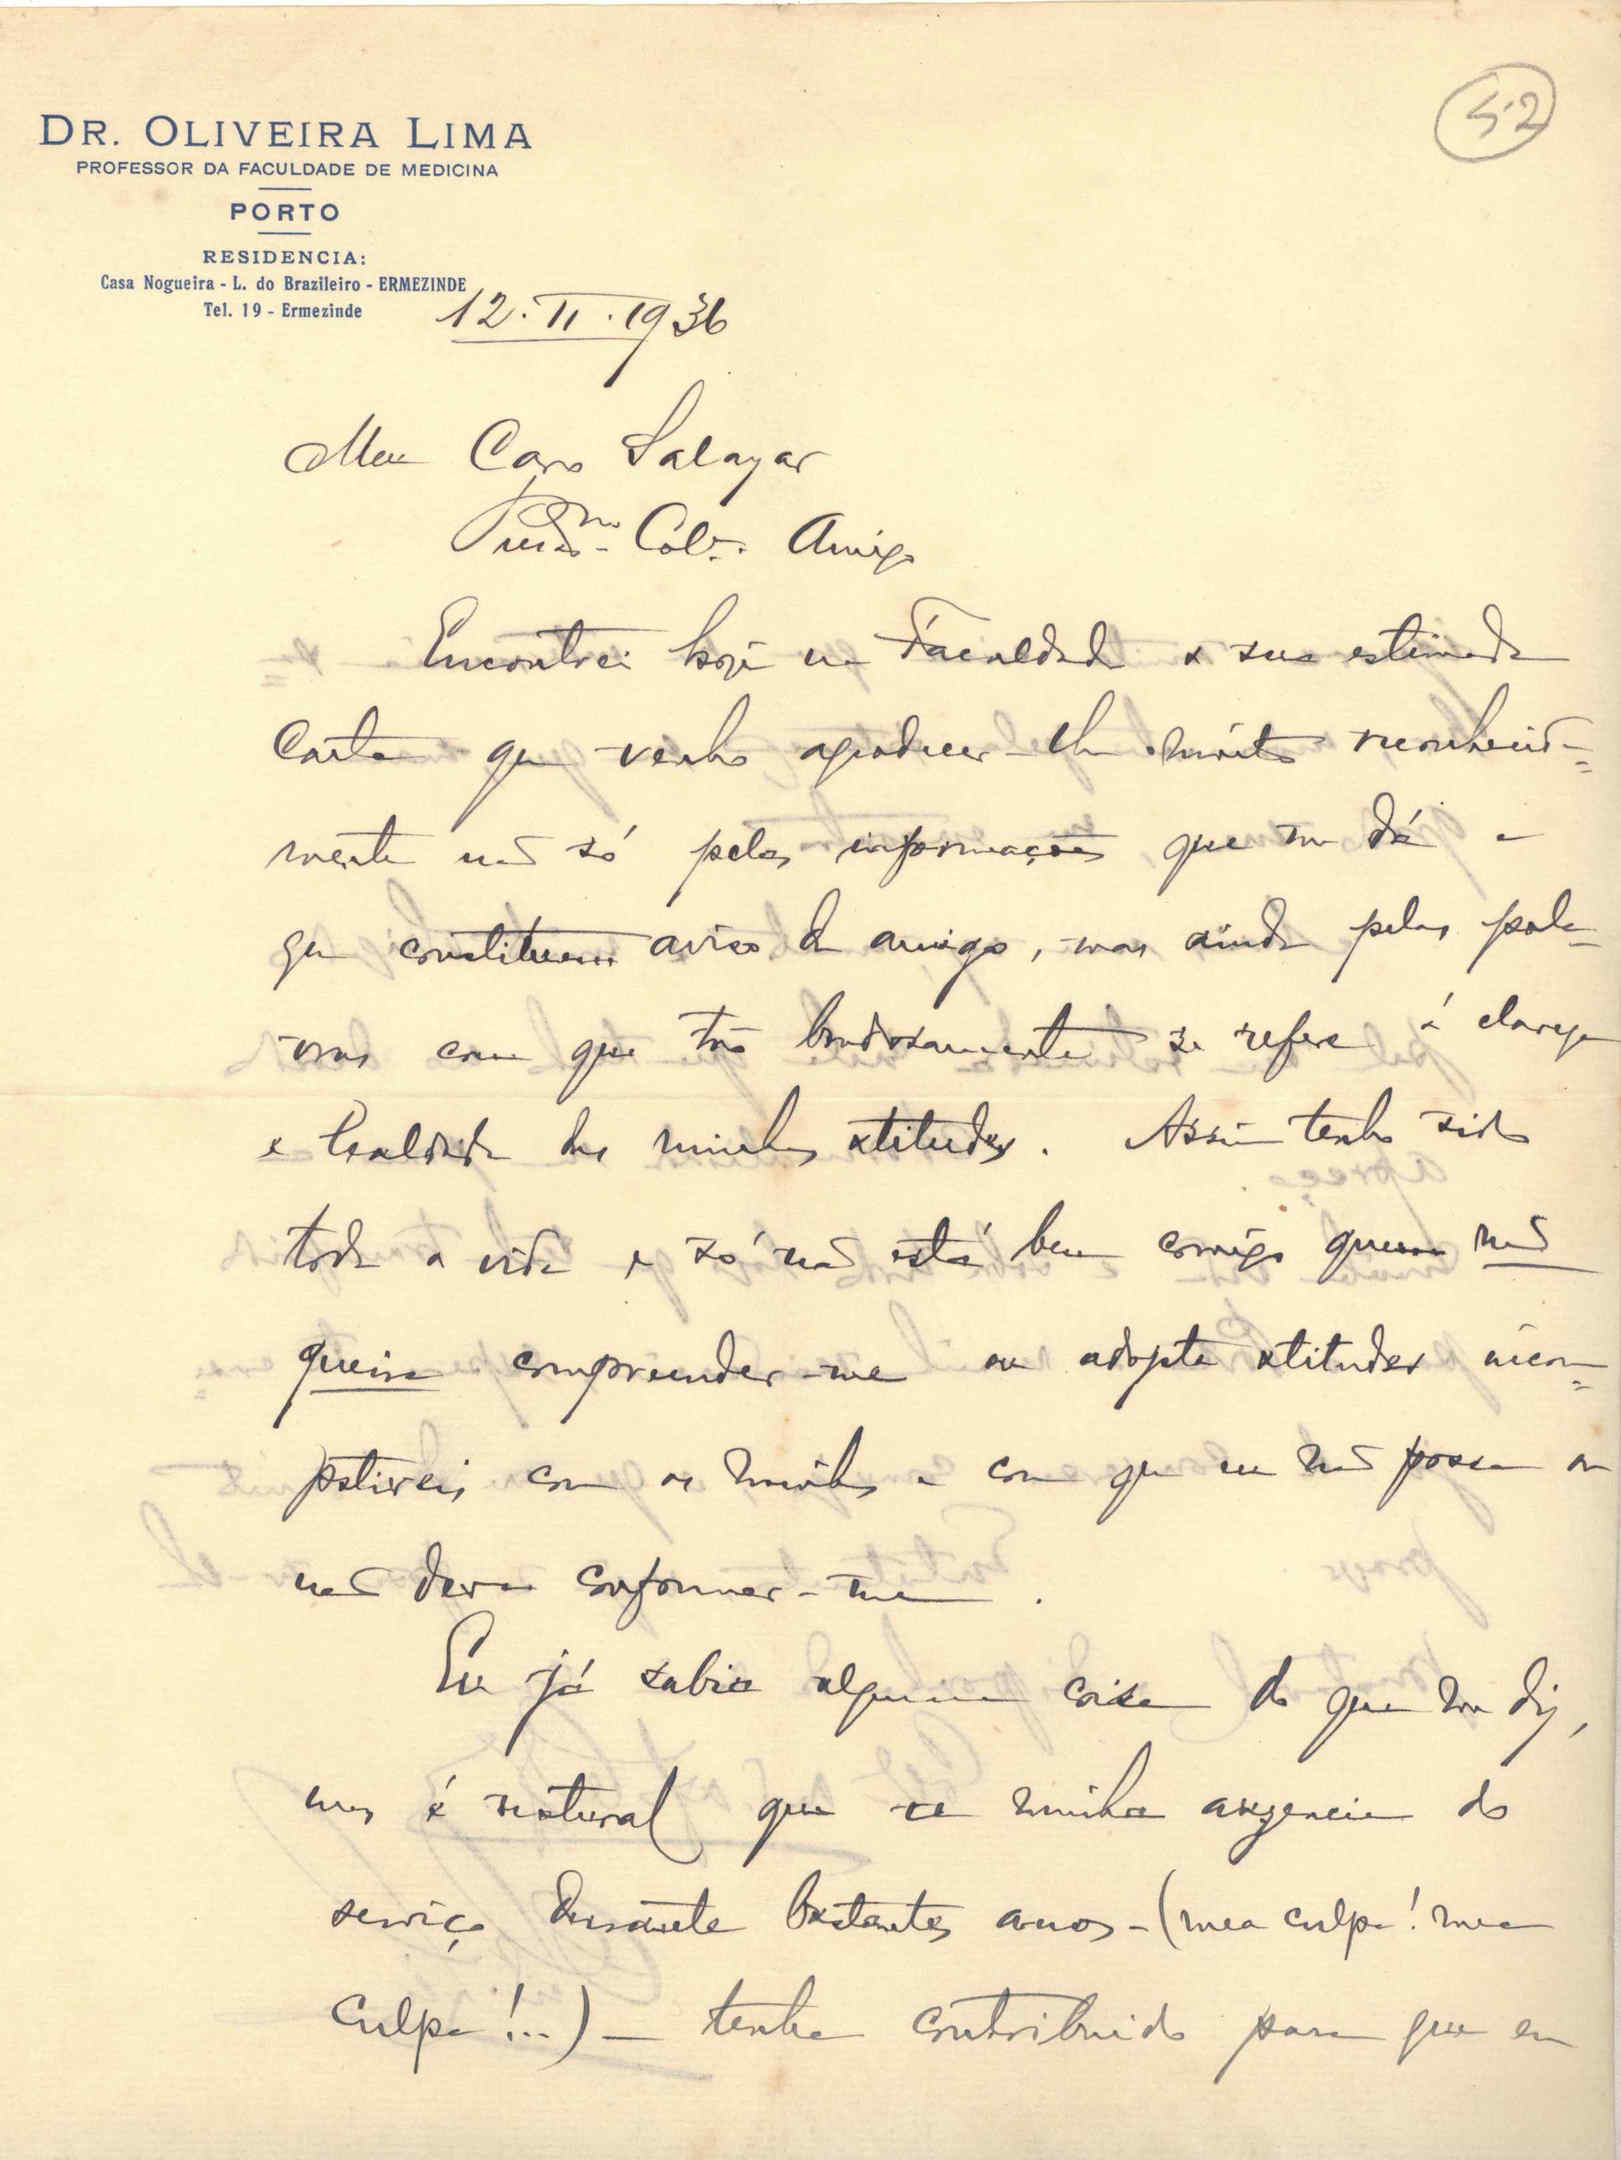 52
DR. OLIVEIRA LIMA
PROFESSOR DA FACULDADE DE MEDICINA
PORTO
RESIDENCIA:
Casa Nogueira - L. do Brazileiro - ERMEZINDE
Tel. 19 - Ermezinde
12.II.1936
Meu Caro Salazar
Col.ª Amigo
Encontrei hoje na Faculdade a sua estimada
carta que venho agradecer-lhe muito reconhecida=
mente não só pelas informações que me dá e
que constituem aviso de amigo, mas ainda pelas pala=
vras com que tão bondosamente se refere á clareza
e lealdade das minhas atitudes. Assim tenho sido
toda a vida e só não está bem comigo quem não
queira compreender-me ou adopte atitudes incom=
pativeis com as minhas e com que eu não possa ou
não deva conformar-me.
Eu já sabia alguma coisa do que me diz,
mas é natural que a minha auzencia do
serviço durante bastantes anos - (mea culpa! mea
culpa!...) - tenha contribuido para que em